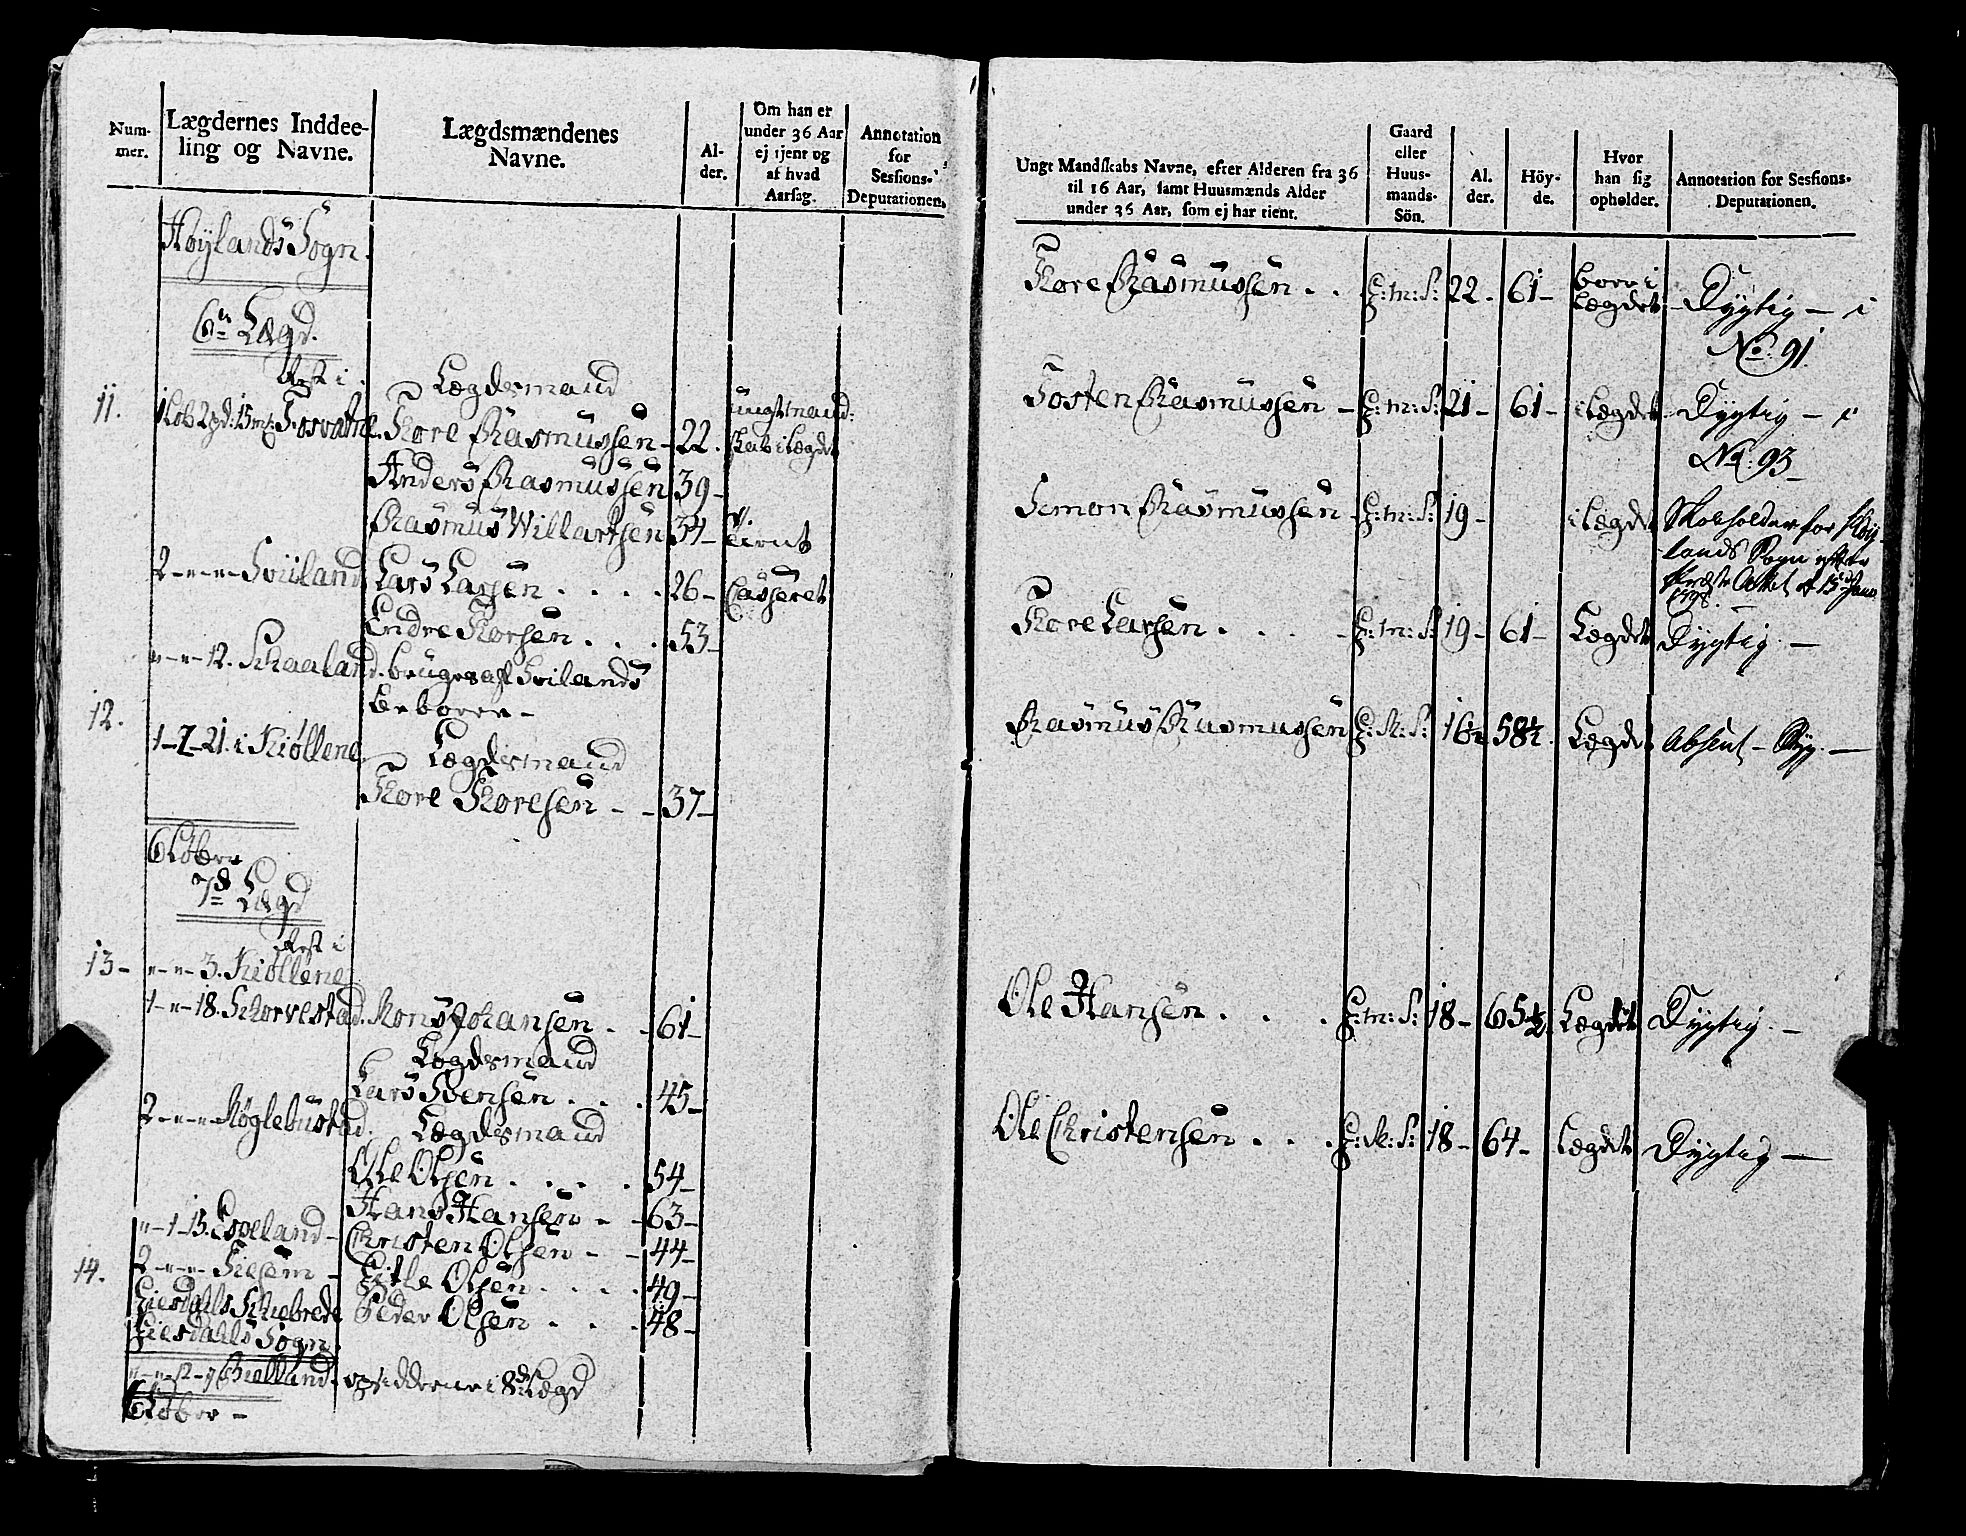 Num-
mer.
Lægdernes Inddee-
ling og Navne.
Lægdsmændenes
Navne.
Al-
der.
Om han er
under 36 Aar
ej tjent og
af hvad
Aarsag.
Annotation
for
Sessions-
Deputationen.
Høylands Sogn.
6te Lægd.
Rest i
Lægdsmand
11.
1 Lob 2 Spd: 15 mk: Fosvatne.
Tore Rasmussen - 22.
ungt mand:
skab i Lægdet
Anders Rasmussen 39 -
Rasmus Willartsen 34 -
tient
2 - " - " - Sviland
Lars Larsen . . . . 26 -
Casseret
Endre Torsen . . . 53 -
" - " - 12. Skaaland.
bruges af Svilands
Beboere -
12.
1 - 2 - 21. i Kiøllene.
Lægdsmand
Tore Toresen - - 37 -
6 Løber
7de Lægd
Rest i
13 - " - " - 3. Kiøllene
1 - " - 18. Skorvestad.
Mons Johansen . . 61 -
Lægdsmand
Lars Svensen . . . 45 -
2 - " - " - Røglebustad.
Lægdsmand
Ole Olsen . . . . 54 -
Hans Hansen - - 63 -
" - 1 - 15. Espeland -
Christen Olsen - - 44 -
14.
2 - " - " - Fiesem -
Gitle Olsen . . . . 49 -
Giesdahls Skibrede
Peder Olsen . . . 48 -
Giesdahls Sogn.
" - " - 12 - Bielland.
opsidderne i 8de Lægd
6 Løber -
Ungt Mandskabs Navne, efter Alderen fra 36
til 16 Aar, samt Huusmænds Alder
under 36 Aar, som ej har tient.
Gaard
eller
Huus-
mands-
Sön.
Al-
der.
Höy-
de.
Hvor
han sig
opholder.
Annotation for Sessions-
Deputationen.
Tore Rasmussen . . G: m: S: 22. 61 - boer i
Lægdet - Dygtig - i
No. 91.
Tosten Rasmussen - G: m: S: 21 - 61 - i Lægdet - Dygtig - i
No: 93 -
Simon Rasmussen - G: m: S: 19 - i Lægdet
for Höy-
lands Sogn efter
15de Janr
Tore Larsen . . . . - G: m: S: 19 - 61 - Lægdet Dygtig. -
Rasmus Rasmussen G: M: S: 16½ 58½. Lægdet Absent - Syg. -
Ole Hansen . . . . G: m: S: 18 - 65½ Lægdet Dygtig. -
Ole Christensen . . . G: M: S: 18 - 64 - Lægdet Dygtig -